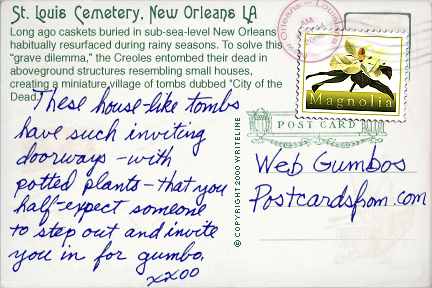 St. Louis Cemetery, New Orleans LA
Long ago caskets buried in sub-sea-level New Orleans
habitually resurfaced during rainy seasons. To solve this
"grave dilemma," the Creoles entombed their dead in
aboveground structures resembling small houses,
creating a miniature village of tombs dubbed "City of the
Dead."
These house-like tombs
have such inviting
doorways -with
potted plants- that you
half-expect someone
to step out and invite
you in for gumbo.
xxoo
© COPYRIGHT 2000 WRITELINE
New Orleans Louisiana
Magnolia
POST CARD
Web Gumbos
Postcardsfrom.com